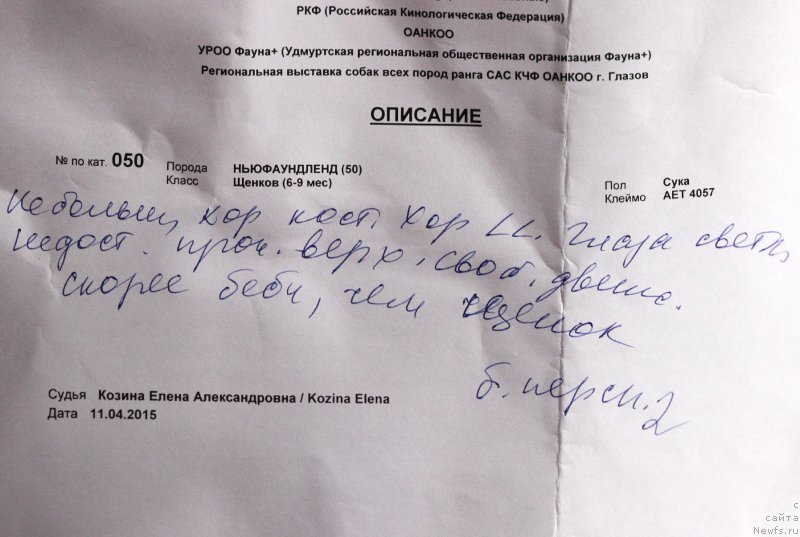 РКФ (Российская Кинологическая Федерация)
ОАНКОО
УРОО Фауна+ (Удмуртская региональная общественная организация Фауна+)
Региональная выставка собак всех пород ранга САС КЧФ ОАНКОО г. Глазов
ОПИСАНИЕ
№ по кат. 050
Порода НЬЮФАУНДЛЕНД (50)
Класс Щенков (6-9 мес)
Пол Сука
Клеймо AET 4057
Небольш, хор кост. Хор Глаза светл,
недост. проч. верх. своб. движ.
скорее беби, чем щенок
б. персп. 2
Судья Козина Елена Александровна / Kozina Elena
Дата 11.04.2015
с
сайта
Newfs.ru